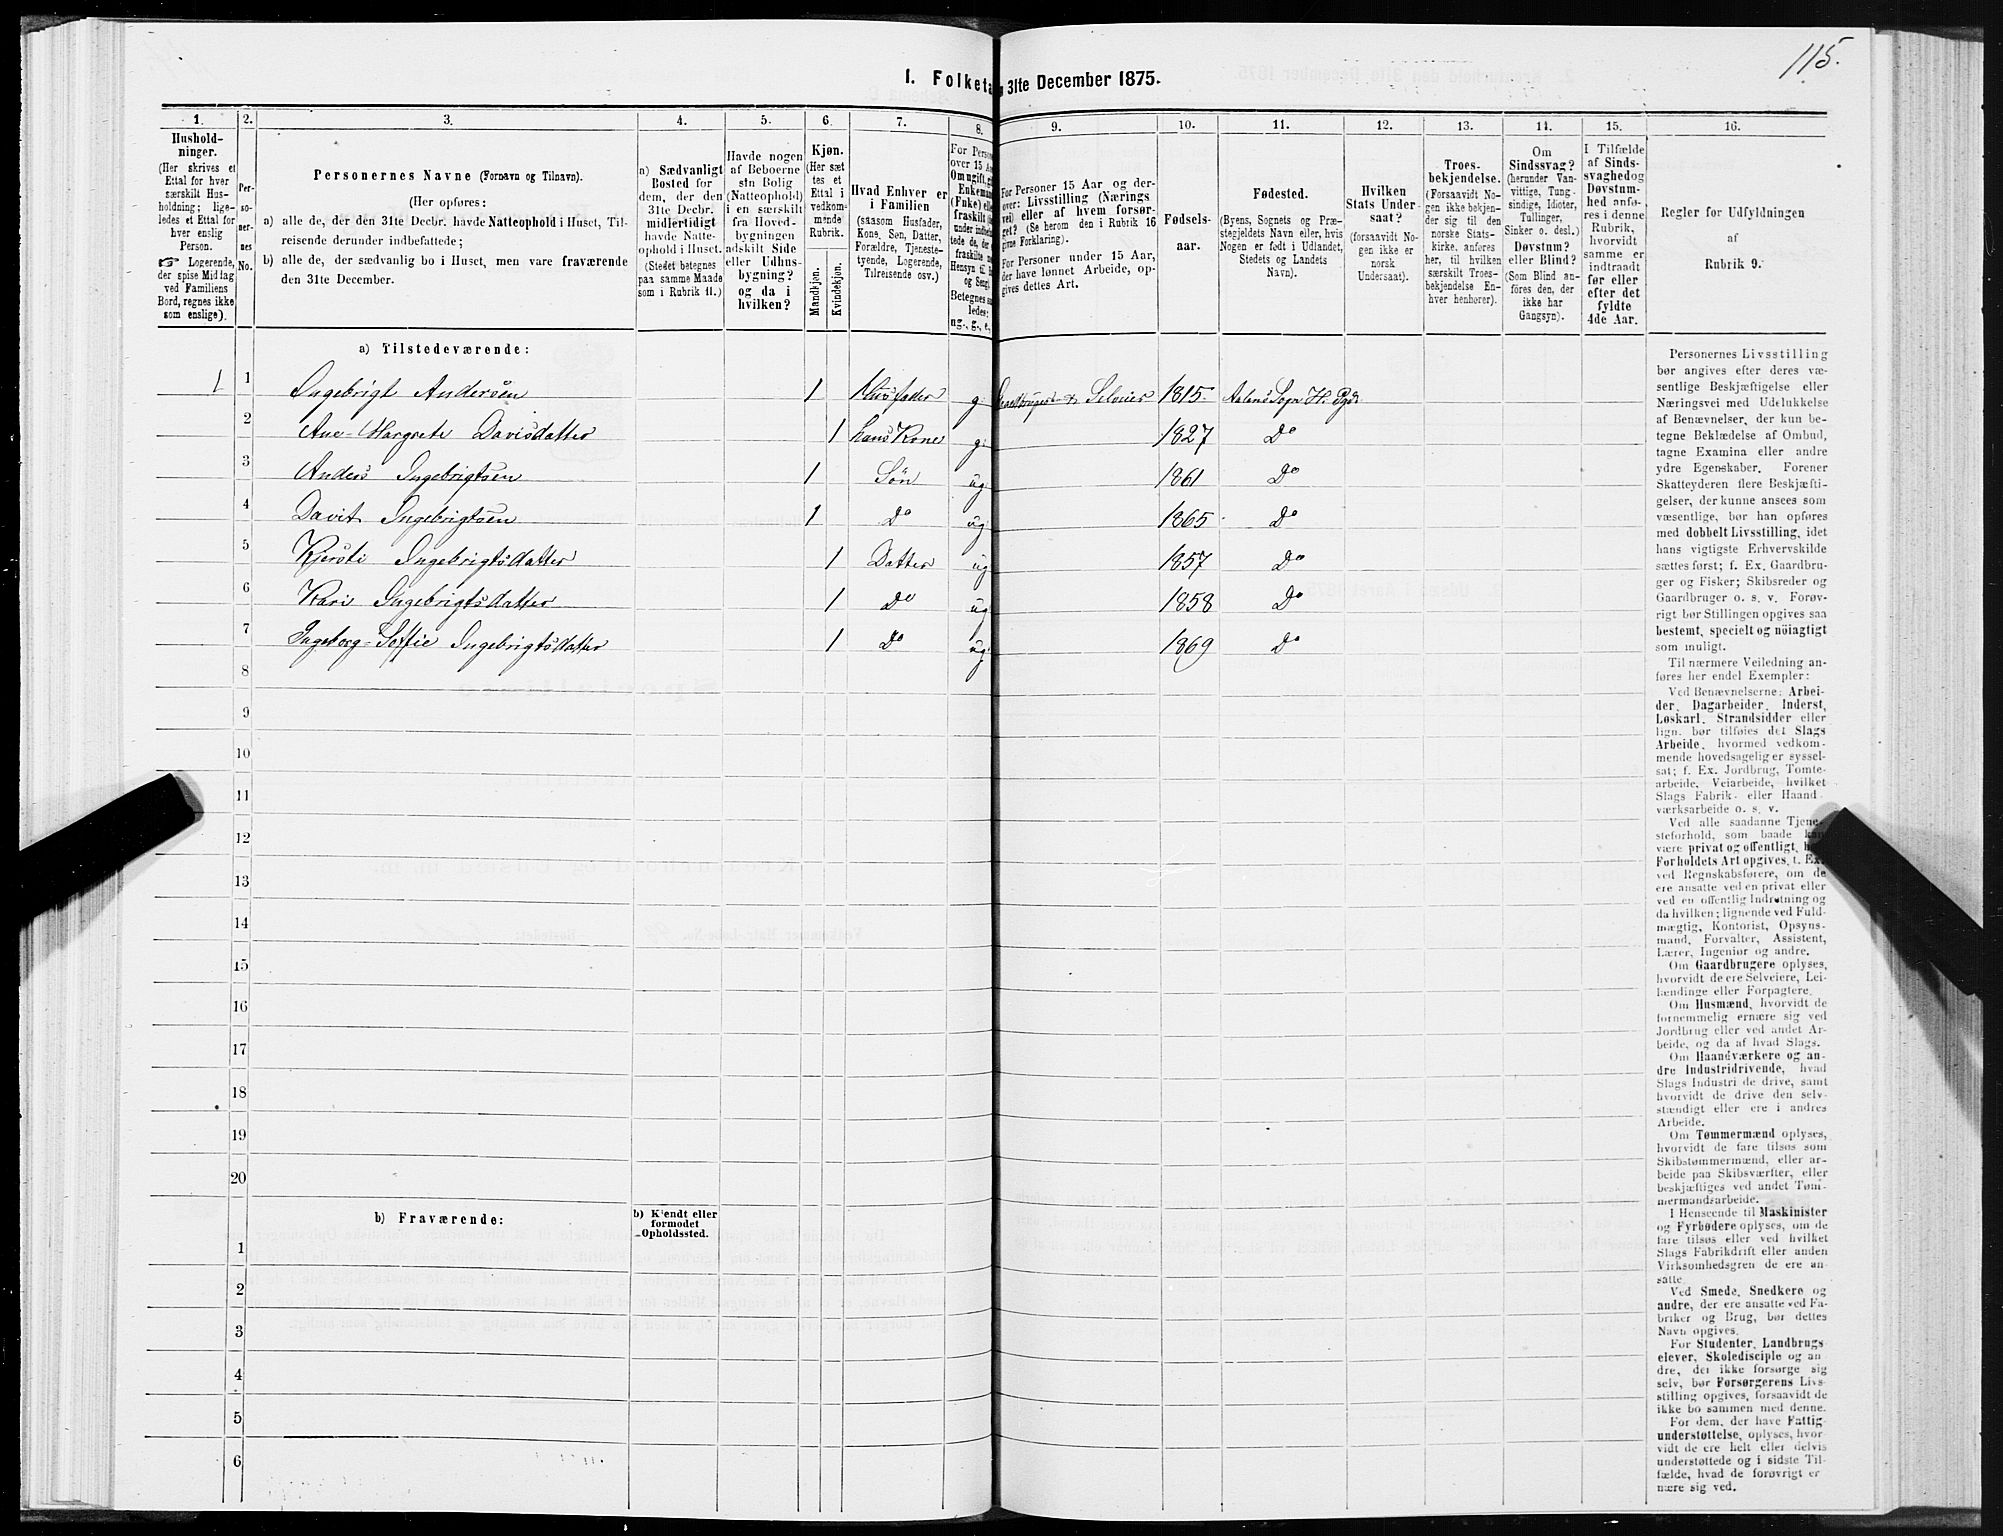 115.
1. Folketa
n 31te December 1875.
1.
2.
3.
4.
5.
6.
7.
8.
9.
10.
11.
12.
13.
14.
15.
16.
Hushold-
ninger.
(Her skrives et
Ettal for hver
særskilt Hus-
holdning; lige-
ledes et Ettal for
hver enslig
Person.
☞ Logerende,
der spise Middag
ved Familiens
Bord, regnes ikke
som enslige).
Per-
so-
ner-
nes
No.
Personernes Navne (Fornavn og Tilnavn).
(Her opføres:
a) alle de, der den 31te Decbr. havde Natteophold i Huset, Til-
reisende derunder indbefattede;
b) alle de, der sædvanlig bo i Huset, men vare fraværende
den 31te December.
a) Sædvanligt
Bosted for
dem, der den
31te Decbr.
midlertidigt
havde Natte-
ophold i Huset.
(Stedet betegnes
paa samme Maade
som i Rubrik 11.)
Havde nogen
af Beboerne
sin Bolig
(Natteophold)
i en særskilt
fra Hoved-
bygningen
adskilt Side
eller Udhus-
bygning?
og da i
hvilken?
Kjøn.
(Her sæt
tes et
Ettal i
vedkom-
mende
Rubrik.
Mandkjøn.
Kvindekjøn.
Hvad Enhver er
i Familien
(saasom Husfader,
Kone, Søn, Datter,
Forældre, Tjeneste-
tyende, Logerende,
Tilreisende osv.)
For Person
over 15 Aa
Om ugift, gi
Enkeman
(Enke) elle
fraskilt
under indbe
tede de, der
fraskilte
Hensyn til
og Seng
Betegnes sa
ledes:
ug., g., e.,
For Personer 15 Aar og der-
over: Livsstilling (Nærings
vei) eller af hvem forsør-
get? (Se herom den i Rubrik 16
givne Forklaring).
For Personer under 15 Aar,
der have lønnet Arbeide, op-
gives dettes Art.
Fødsels-
aar.
Fødested.
(Byens, Sognets og Præ-
stegjeldets Navn eller, hvis
Nogen er født i Udlandet,
Stedets og Landets
Navn).
Hvilken
Stats Under-
saat?
(forsaavidt No-
gen ikke er
norsk
Undersaat).
Troes-
bekjendelse.
(Forsaavidt No-
gen ikke bekjen-
der sig til den
norske Stats-
kirke, anføres
her, til hvilken
særskilt Troes-
bekjendelse En-
hver henhører).
Om
Sindssvag?
(herunder Van-
vittige, Tung-
sindige, Idioter,
Tullinger,
Sinker o. desl.)
Døvstum?
eller Blind?
(Som Blind an-
føres den, der
ikke har
Gangsyn).
I Tilfælde
af Sinds-
svaghed og
Døvstum-
hed anfø-
res i denne
Rubrik,
hvorvidt
samme er
indtraadt
før eller
efter det
fyldte
4de Aar.
Regler for Udfyldningen
af
Rubrik 9.
a) Tilstedeværende:
1 1 Ingebrigt Andersen 1 Husfader g. Gaardbruger & Selveier 1815 Aalens Sogn H. Pgd.
2 Ane-Margrete Davisdatter 1 hans Kone g. 1827 Do
3 Anders Ingebrigtsen 1 Søn ug. 1861 Do
4 Davit Ingebrigtsen 1 Do ug. 1865 Do
5 Kjersti Ingebrigtsdatter 1 Datter ug. 1857 Do
6 Kari Ingebrigtsdatter 1 Do ug. 1858 Do
7 Ingeborg-Soffie Ingebrigtsdatter 1 Do ug. 1869 Do
8
9
10
11
12
13
14
15
16
17
18
19
20
b) Fraværende:
b) Kjendt eller
formodet
Opholdssted.
1
2
3
4
5
6
Personernes Livsstilling
bør angives efter deres væ-
sentlige Beskjæftigelse eller
Næringsvei med Udelukkelse
af Benævnelser, der kun be-
tegne Beklædelse af Ombud,
tagne Examina eller andre
ydre Egenskaber. Forener
Skatteyderen flere Beskjæfti-
gelser, der kunne ansees som
væsentlige, bør han opføres
med dobbelt Livsstilling, idet
hans vigtigste Erhvervskilde
sættes først; f. Ex. Gaardbru-
ger og Fisker; Skibsreder og
Gaardbruger o. s. v. Forøv-
rigt bør Stillingen opgives saa
bestemt, specielt og nöiagtigt
som muligt.
Til nærmere Veiledning an-
føres her endel Exempler:
Ved Benævnelserne: Arbei-
der, Dagarbeider, Inderst,
Løskarl, Strandsidder eller
lign. bør tilføies det Slags
Arbeide, hvormed vedkom-
mende hovedsagelig er syssel-
sat; f. Ex. Jordbrug, Tomte-
arbeide, Veiarbeide, hvilket
Slags Fabrik- eller Haand-
værksarbeide o. s. v.
Ved alle saadanne Tjene-
steforhold, som baade kan
være privat og offentligt, bør
Forholdets Art opgives, f. Ex.
ved Regnskabsførere, om de
ere ansatte ved en privat eller
ved en offentlig Indretning og
da hvilken; lignende ved Fuld-
mægtig, Kontorist, Opsyns-
mand, Forvalter, Assistent,
Lærer, Ingeniør og andre.
Om Gaardbrugere oplyses,
hvorvidt de ere Selveiere, Lei-
lændinge eller Forpagtere.
Om Husmænd, hvorvidt de
fornemmelig ernære sig ved
Jordbrug eller ved andet Ar-
beide, og da af hvad Slags.
Om Haandværkere og an-
dre Industridrivende, hvad
Slags Industri de drive, samt
hvorvidt de drive den selv-
stændigt eller ere i andres
Arbeide.
Om Tømmermænd oplyses,
hvorvidt de fare tilsøs som
Skibstømmermænd, eller ar-
beide paa Skibsværfter, eller
beskjæftiges ved andet Tøm-
mermandsarbeide.
I Henseende til Maskinister
og Fyrbødere oplyses, om de
fare tilsøs eller ved hvilket
Slags Fabrikdrift eller anden
Virksomhedsgren de ere an-
satte.
Ved Smede, Snedkere og
andre, der ere ansatte ved Fa-
briker og Brug, bør dettes
Navn opgives.
For Studenter, Landbrugs-
elever, Skoledisciple og an-
dre, der ikke forsørge sig
selv, bør Forsørgerens Livs-
stilling opgives, forsaavidt de
ikke bo sammen med denne.
For dem, der have Fattig-
understøttelse, oplyses, hvor-
vidt de ere helt eller delvis
understøttede og i sidste Til-
fælde, hvad de forøvrigt er
nære sig ved.